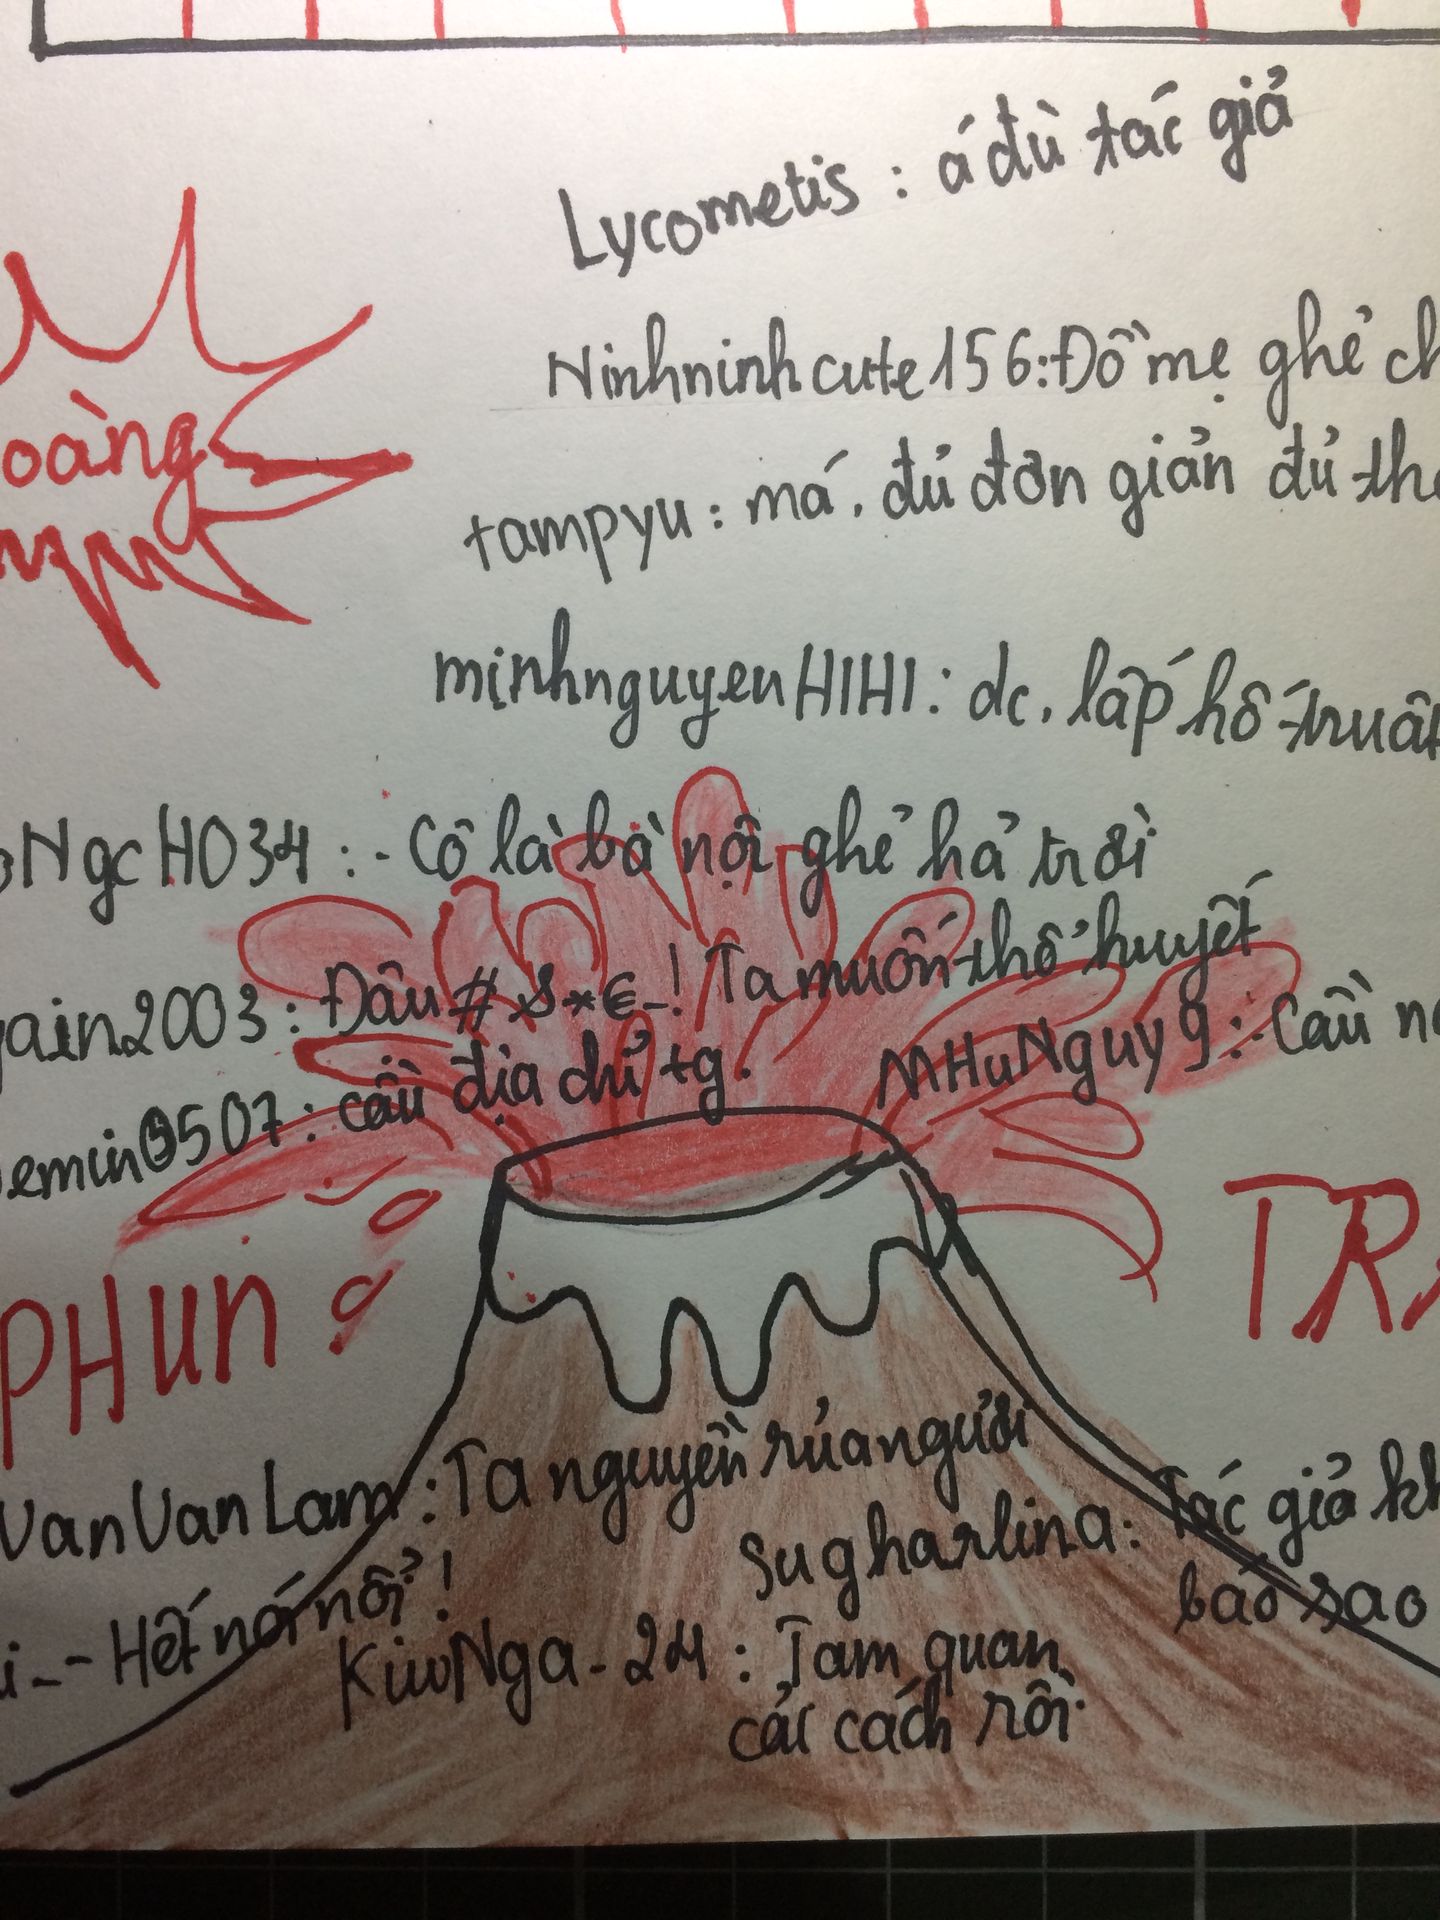 Lycometis : á đù tác giả
oàng
Ninhninhcute156:Đồ mẹ ghẻ
tampyu : má, đủ đơn giản đủ
minhnguyenHIHI: dc, lấp hố
NgcHO34 : - Cô là bà nội ghẻ hả trời
ain2003 : Đâu #$*€-! Ta muốn thổ huyết
emin0507 : cầu địa chỉ tg.
MHuNguy9 : Cầu
PHun
VanVanLam : Ta nguyền rủa ngươi
Sugharlina: Tác giả
báo sao
i_-- Hết nói nổi !
KiwNga-24 : Tam quan
cải cách rồi